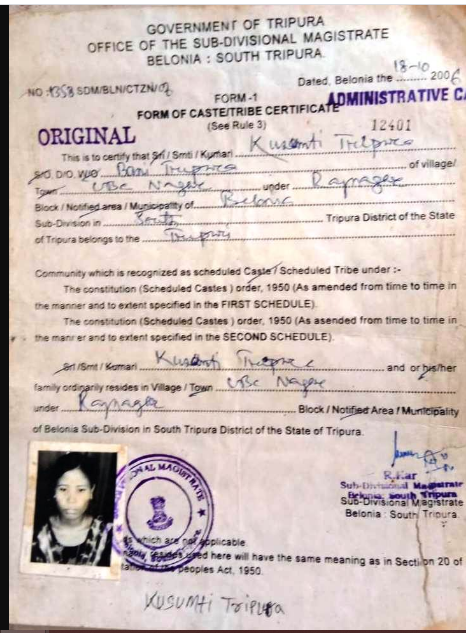 GOVERNMENT OF TRIPURA
OFFICE OF THE SUB-DIVISIONAL MAGISTRATE
BELONIA : SOUTH TRIPURA.
Dated, Belonia the 18-10 2006
NO 1358 SDM/BLN/CTZN/
FORM -1
ADMINISTRATIVE CA
FORM OF CASTE/TRIBE CERTIFICATE
(See Rule 3)
12401
ORIGINAL
This is to certify that Sri / Smti / Kumari Kusumti Tripura
S/O. D/O. W/O Tripura of village/
Town Nagar under Rajnagar
Block / Notified area / Municipality of Belonia
Sub-Division in South Tripura District of the State
of Tripura belongs to the Tripuri
Community which is recognized as scheduled Caste / Scheduled Tribe under :-
The constitution (Scheduled Castes ) order, 1950 (As amended from time to time in
the manner and to extent specified in the FIRST SCHEDULE).
The constitution (Scheduled Castes ) order, 1950 (As asended from time to time in
the manner and to extent specified in the SECOND SCHEDULE).
Sri /Smt / Kumari Kusumti Tripura and or his/her
family ordinarily resides in Village / Town Nagar
under Rajnagar Block / Notified Area / Municipality
of Belonia Sub-Division in South Tripura District of the State of Tripura.
R. Kar
Sub-Divisional Magistrate
Belonia: South Tripura
Sub-Divisional Magistrate
Belonia : South Tripura.
MAGISTRATE
which are not applicable.
resides used here will have the same meaning as in Section 20 of
of the peoples Act, 1950.
KUSUMTI Tripura